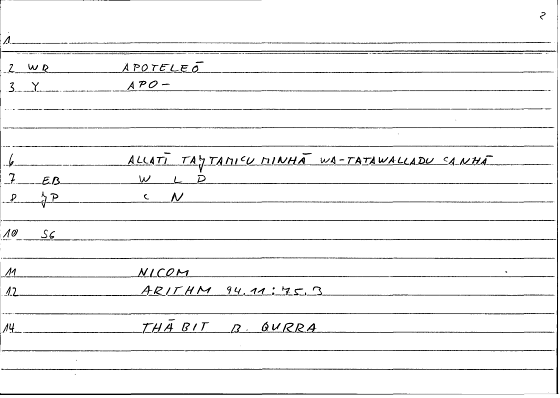 2
1
2 WR APOTELEŌ
3 Y APO-
6 ALLATĪ TAJTAMIᶜU MINHĀ WA-TATAWALLADU ᶜANHĀ
7 EB W L D
8 JP ᶜ N
10 SG
11 NICOM
12 ARITHM 94.11:75.3
14 THĀBIT B. QURRA